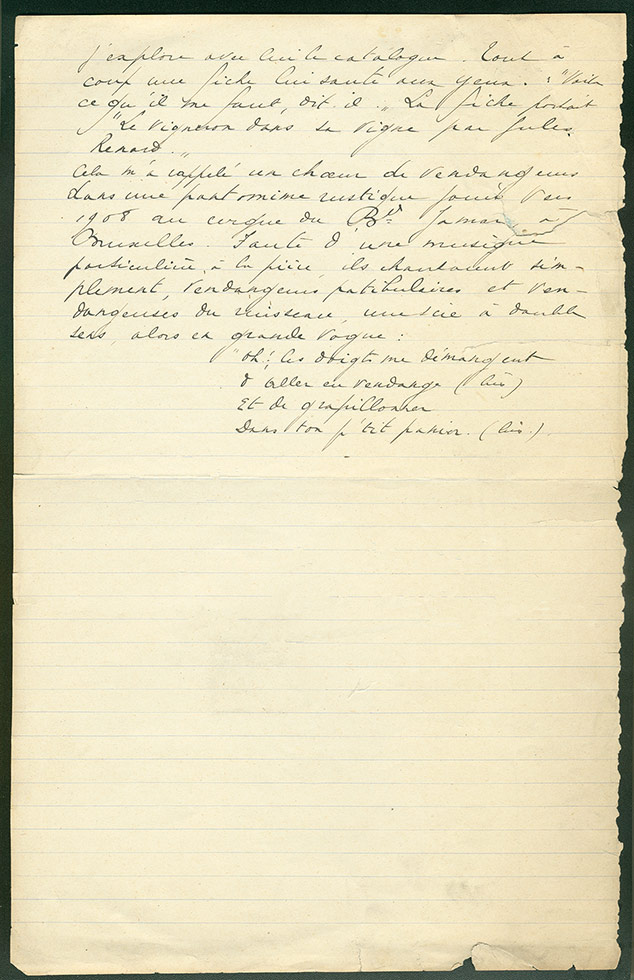 j'explore avec lui le catalogue. Tout à
coup une fiche lui saute aux yeux. : "Voilà
ce qu'il me faut, dit-il." La fiche portait
"Le Vigneron dans sa vigne par Jules
Renard."
Cela m'a rappelé un chœur de vendangeurs
dans une pantomime rustique jouée vers
1908 au cirque du Bd Jamar à
Bruxelles. Faute d'une musique
particulière à la pièce, ils chantaient sim-
plement, vendangeurs patibulaires et ven-
dangeuses du ruisseau, une scie à double
sens, alors en grande vogue :
"Oh! les doigts me démangent
D'aller en vendange (bis)
Et de grapillonner
Dans ton p'tit panier. (bis.)